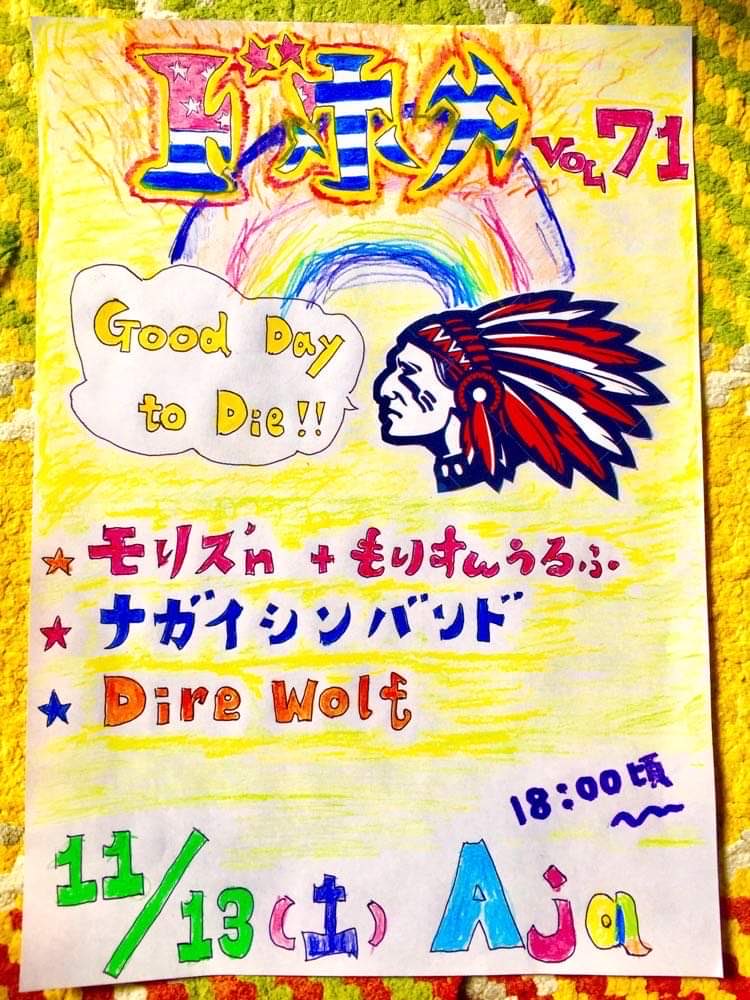 VOL 71
Good Day
to Die!!
モリス'n + もりすんうるふ
ナガイシンバンド
Dire Wolf
18:00頃
11/13(土) Aja